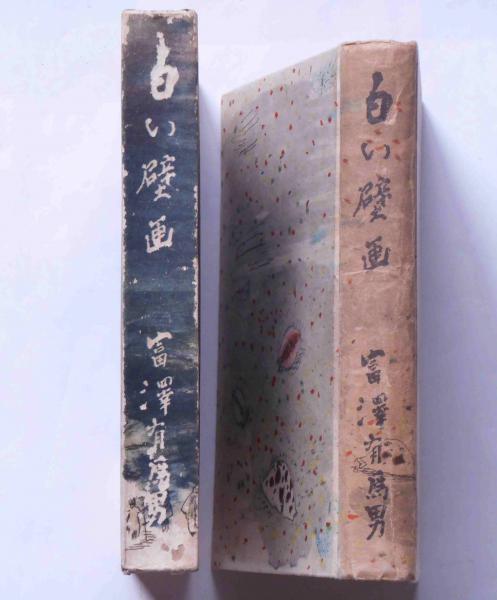 白い壁画
富澤有為男
白い壁画
富澤有為男